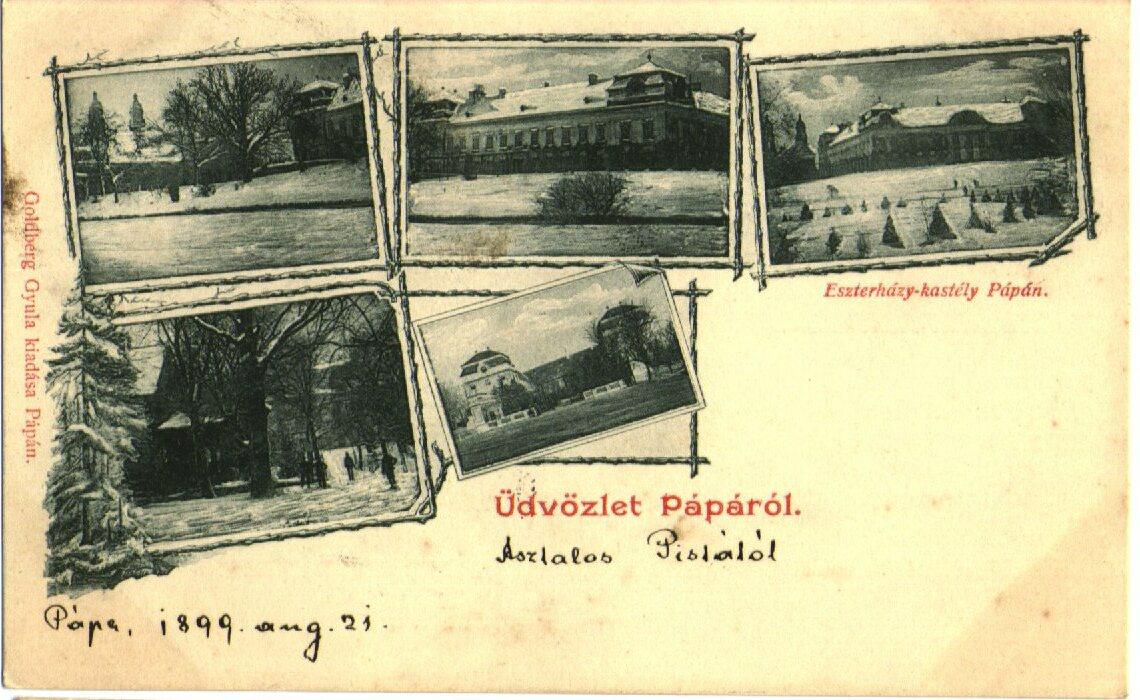 Goldberg Gyula kiadása Pápán.
Eszterházy-kastély Pápán.
Üdvözlet Pápáról.
Asztalos Pistától
Pápa, 1899. aug. 21.